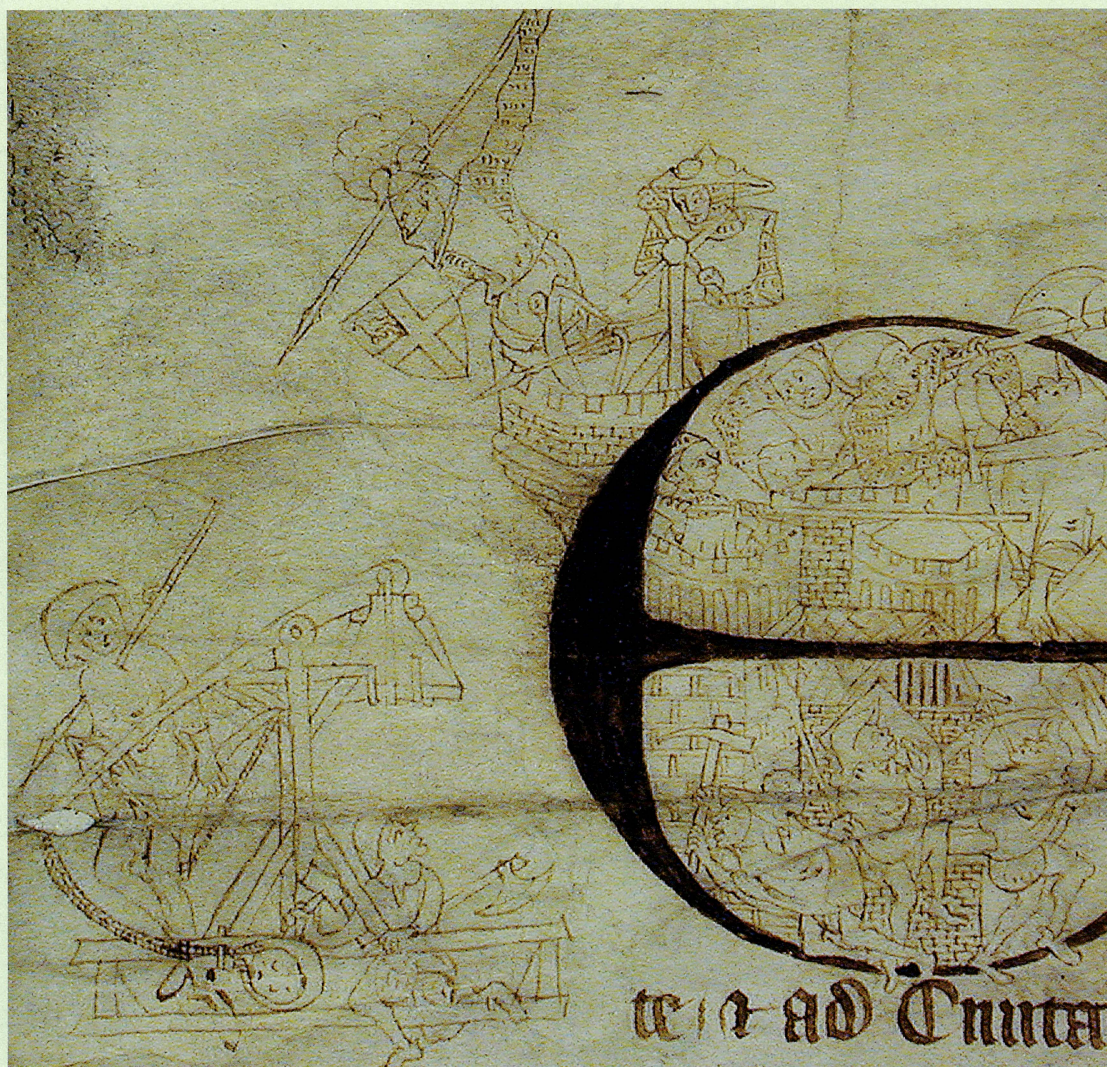 E
te ⁊ ad Ciuita